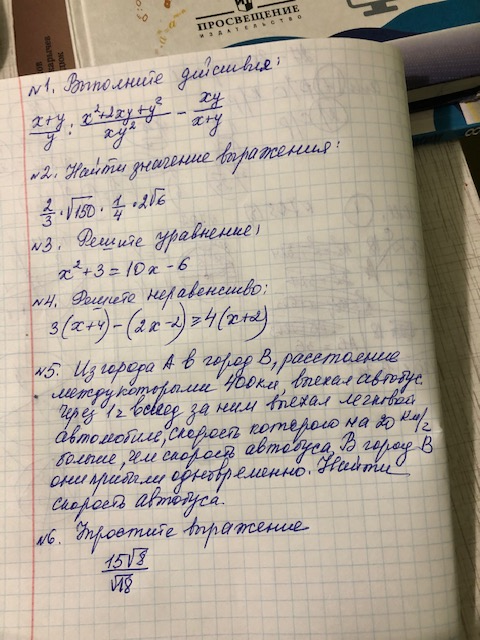 ПРОСВЕЩЕНИЕ
ИЗДАТЕЛЬСТВО
№1. Выполните действия:
(x+y)/y : (x²+2xy+y²)/(xy²) - (xy)/(x+y)
№2. Найти значение выражения:
2/3 · √150 · 1/4 · 2√6
№3. Решите уравнение:
x²+3=10x-6
№4. Решите неравенство:
3(x+4)-(2x-2)≥4(x+2)
№5. Из города А в город В, расстояние
между которыми 400км, выехал автобус.
Через 1ч вслед за ним выехал легковой
автомобиль, скорость которого на 20 км/ч
больше, чем скорость автобуса. В город В
они прибыли одновременно. Найти
скорость автобуса.
№6. Упростите выражение
15√8/√18